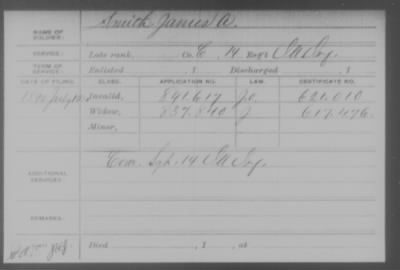 NAME OF SOLDIER: Smith, James A.
SERVICE: Late rank, Co. C, 14 Reg't
TERM OF SERVICE: Enlisted , 1 Discharged , 1
DATE OF FILING. CLASS. APPLICATION NO. LAW. CERTIFICATE NO.
Invalid, 891.617 621.010
Widow, 837.840 617.476
Minor,
ADDITIONAL SERVICES: 14
REMARKS:
Died , 1 , at